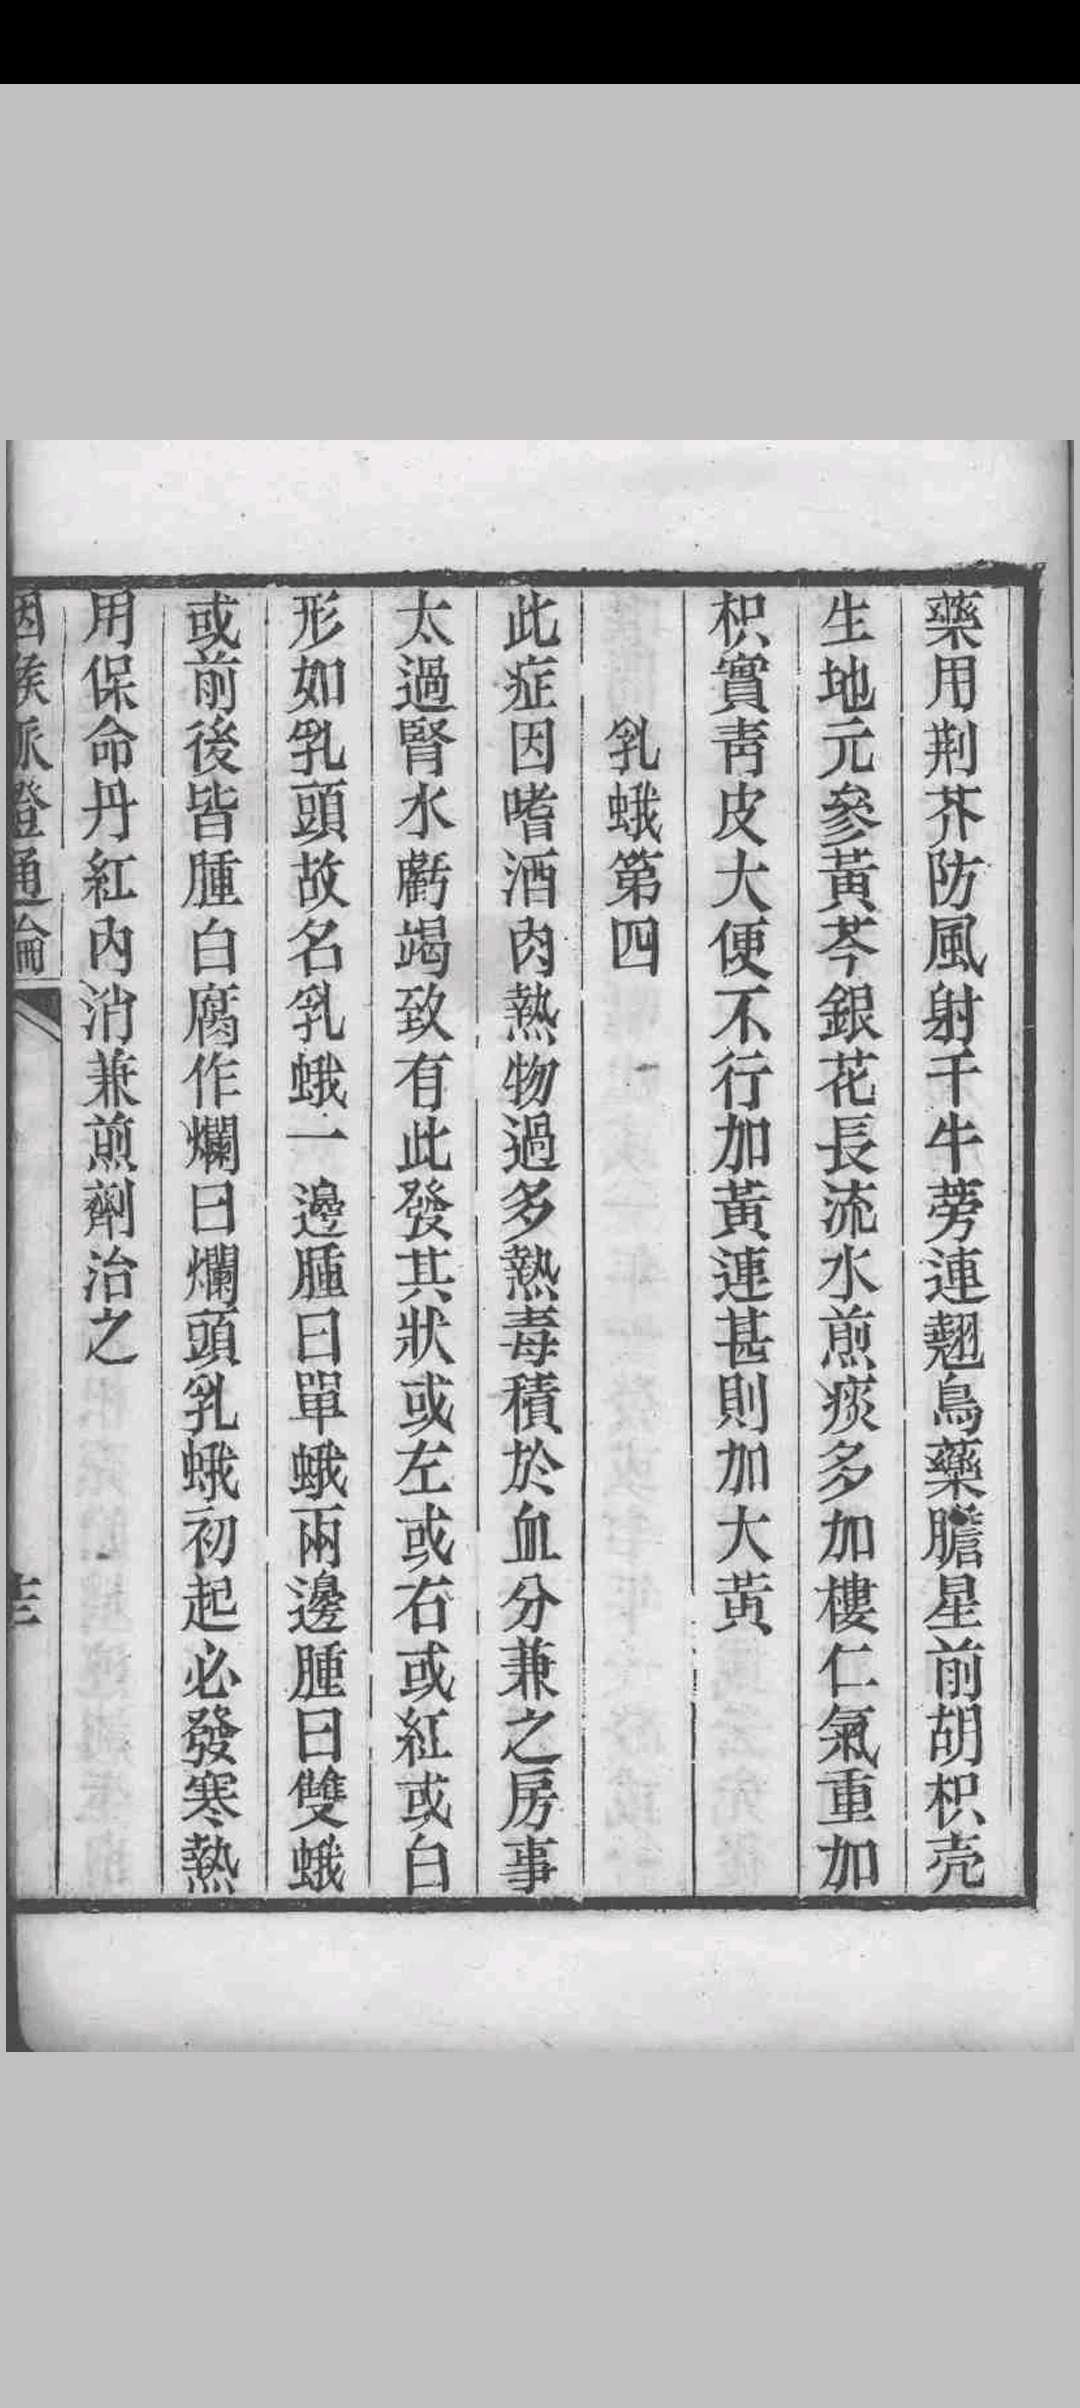 藥用荆芥防風射干牛蒡連翹烏藥膽星前胡枳壳
生地元參黃芩銀花長流水煎痰多加樓仁氣重加
枳實靑皮大便不行加黃連甚則加大黃
乳蛾第四
此症因嗜酒肉熱物過多熱毒積於血分兼之房事
太過腎水虧竭致有此發其狀或左或右或紅或白
形如乳頭故名乳蛾一邊腫曰單蛾兩邊腫曰雙蛾
或前後皆腫白腐作爛曰爛頭乳蛾初起必發寒熱
用保命丹紅內消兼煎劑治之
因候脈證通論